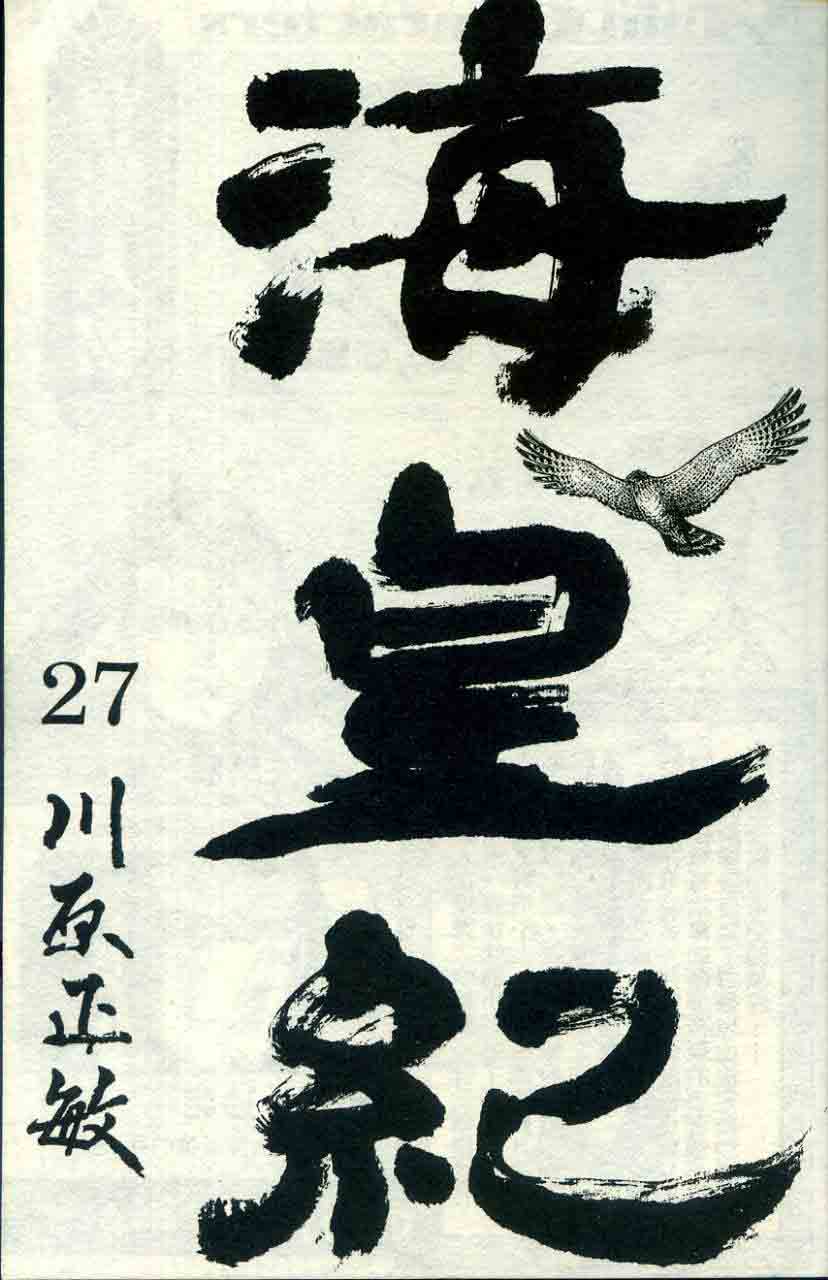 海皇紀
27 川原正敏